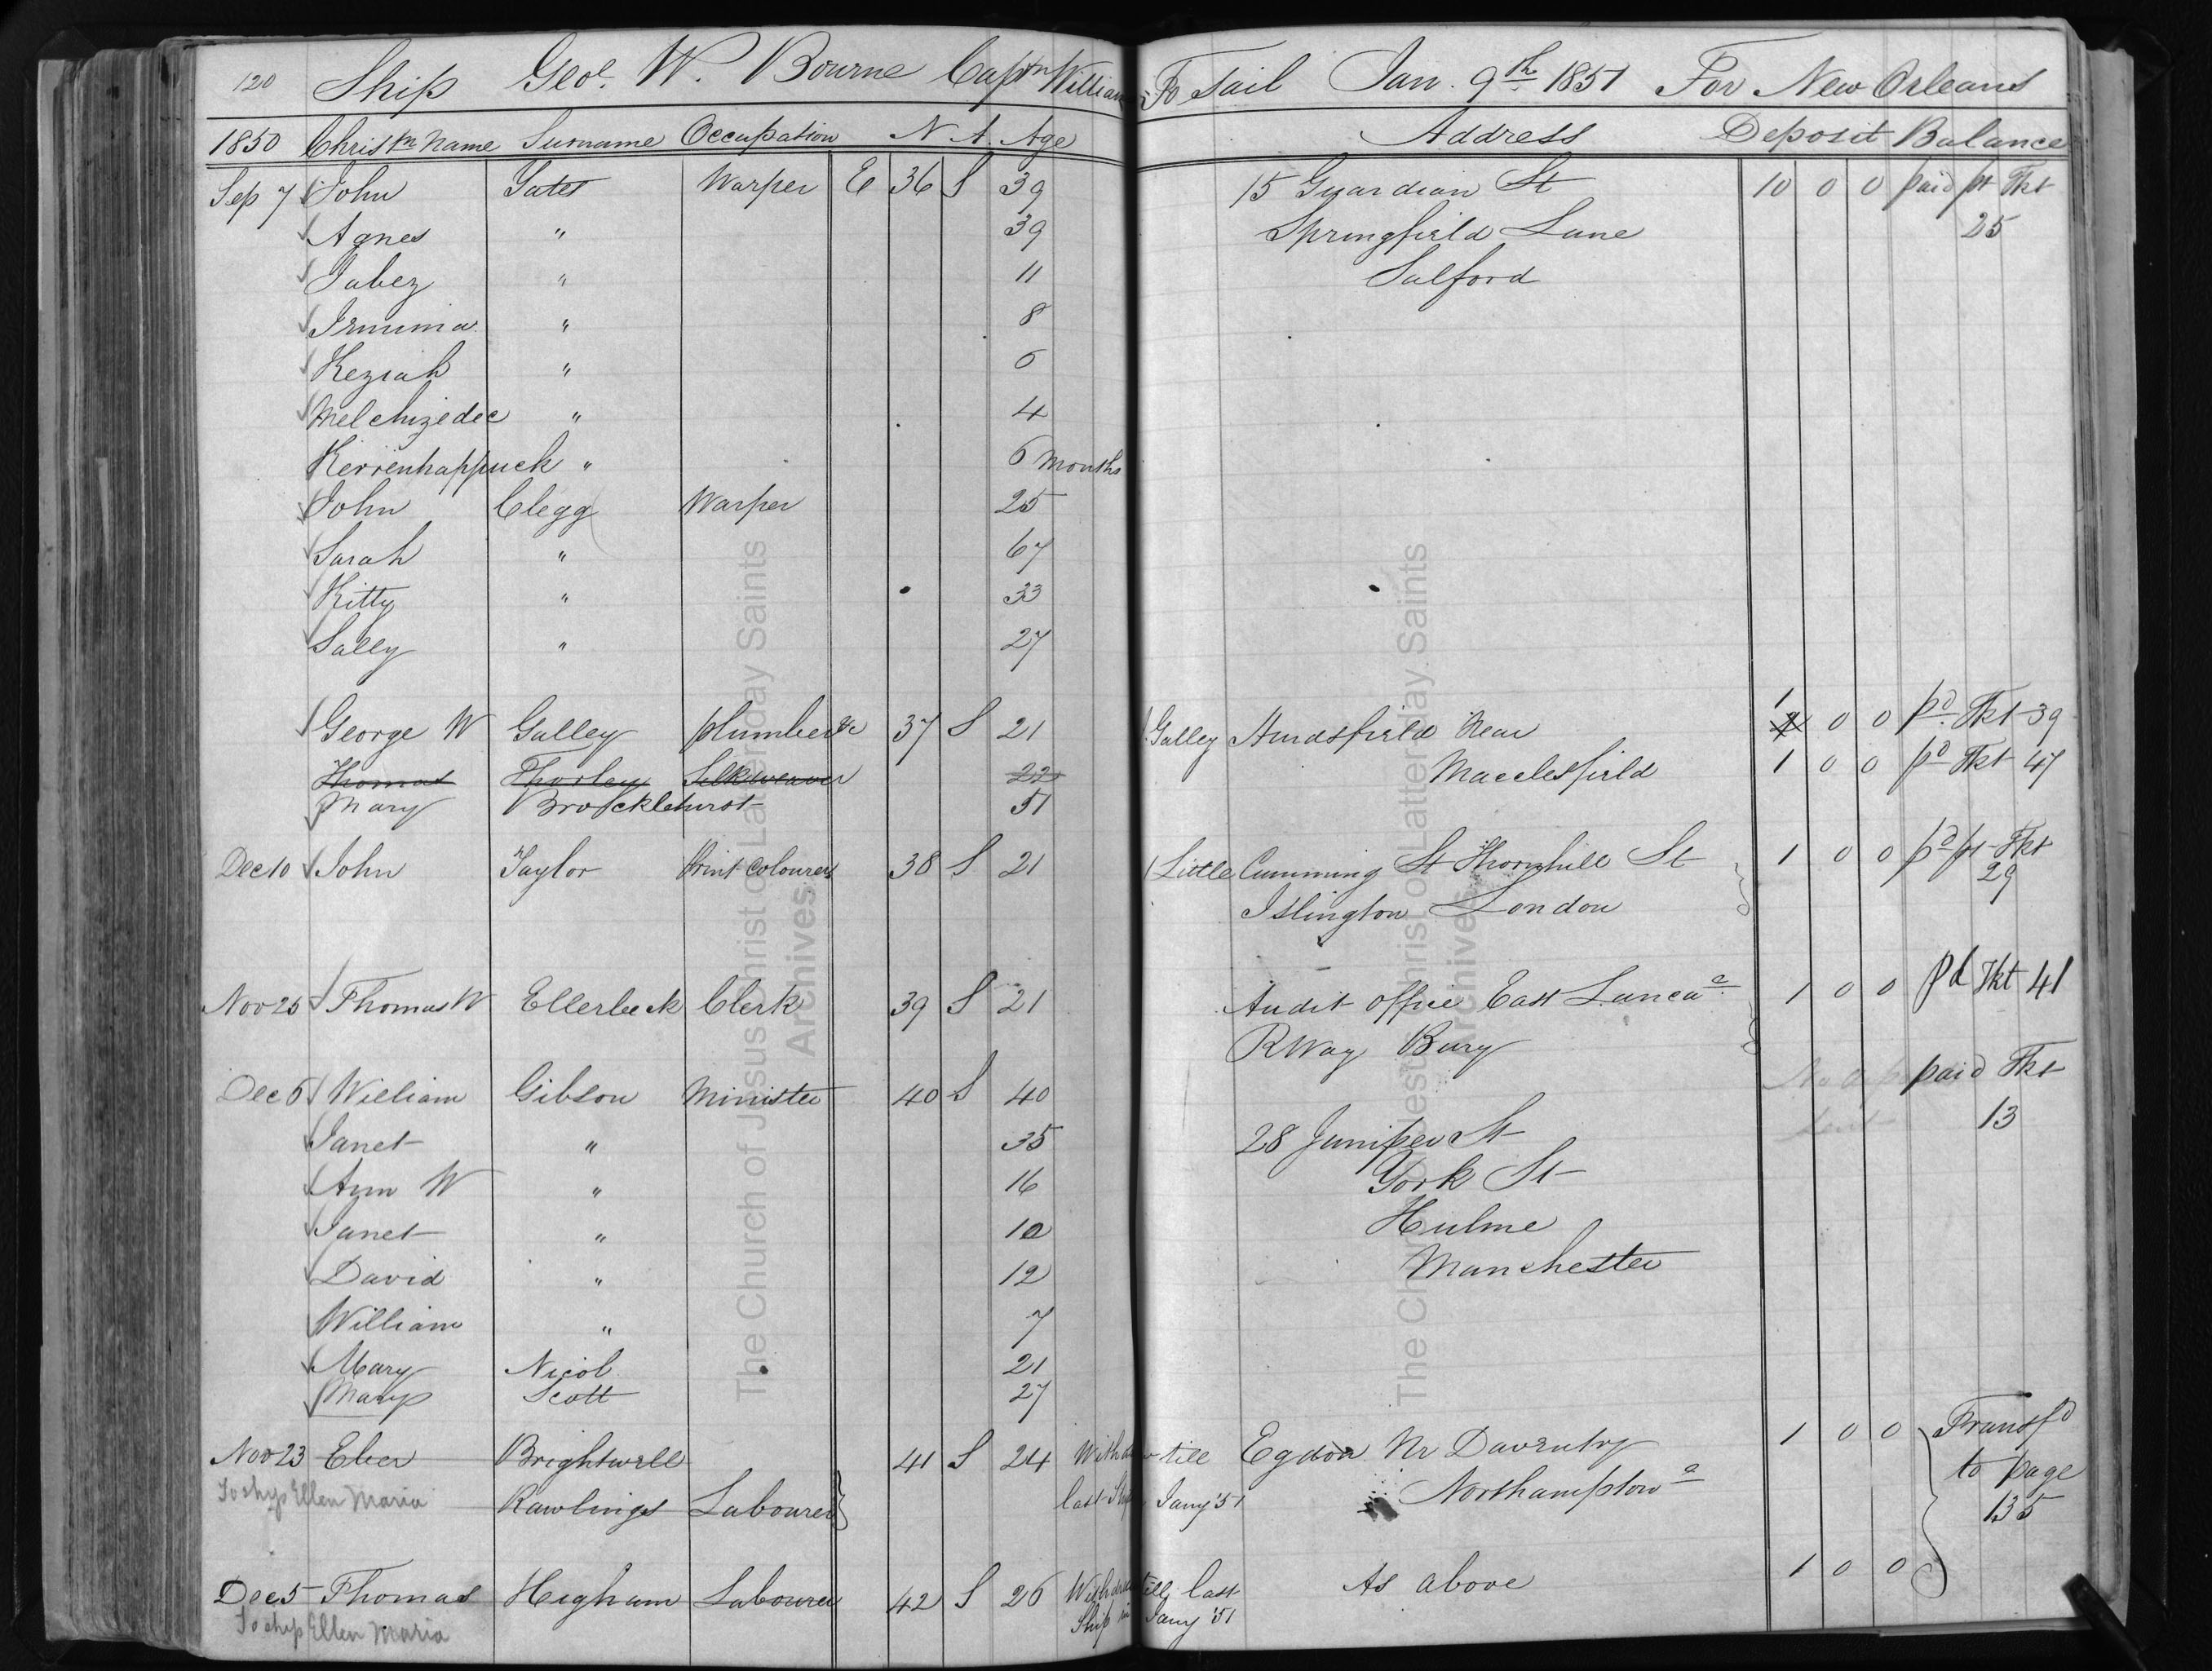 120 Ship Geoe. W. Bourne Captn William To Sail Jan. 9th 1851 For New Orleans
1850 Christn Name Surname Occupation N A Age Address Deposit Balance
Sep 7 John Yates Warper E 36 S 39 15 Guardian St 10 0 0 paid pt Tkt
Agnes " 39 Springfield Lane 25
Jabez " 11 Salford
Jemima " 8
Keziah " 6
Melchizedec " 4
Kerrenhappuck " 6 Months
John Clegg Warper 25
Sarah " 67
Kitty " 33
Sally " 27
George W Galley plumber &c 37 S 21 Galley Hurdsfield Near 1 0 0 pd Tkt 39
Thomas Thorley Silkweaver 22 Macclesfield 1 0 0 pd Tkt 47
Mary Brocklehurst 51
Dec 10 John Taylor Print Colourer 38 S 21 1 Little Cumming St Thornhill St 1 0 0 pd pt Tkt
29
Islington London
Nov 25 Thomas W Ellerbeck Clerk 39 S 21 Audit Office East Lanca 1 0 0 pd Tkt 41
R Way Bury
Dec 6 William Gibson Minister 40 S 40 paid Tkt
Janet " 35 28 Juniper St 13
Ann W " 16 York St
Janet " 10 Hulme
David " 12 Manchester
William " 7
Mary Nicol 21
Mary Scott 27
Nov 23 Eber Brightwell 41 S 24 Withdraw till Egdon Nr Daventry 1 0 0 Transfd
to page
To ship Ellen Maria Rawlings Labourer last Ship Jany '51 Northampton 135
Dec 5 Thomas Higham Labourer 42 S 26 Withdraw till last As above 1 0 0
To ship Ellen Maria Ship in Jany '51
The Church of Jesus Christ of Latter-day Saints
Archives
The Church of Jesus Christ of Latter-day Saints
Archives